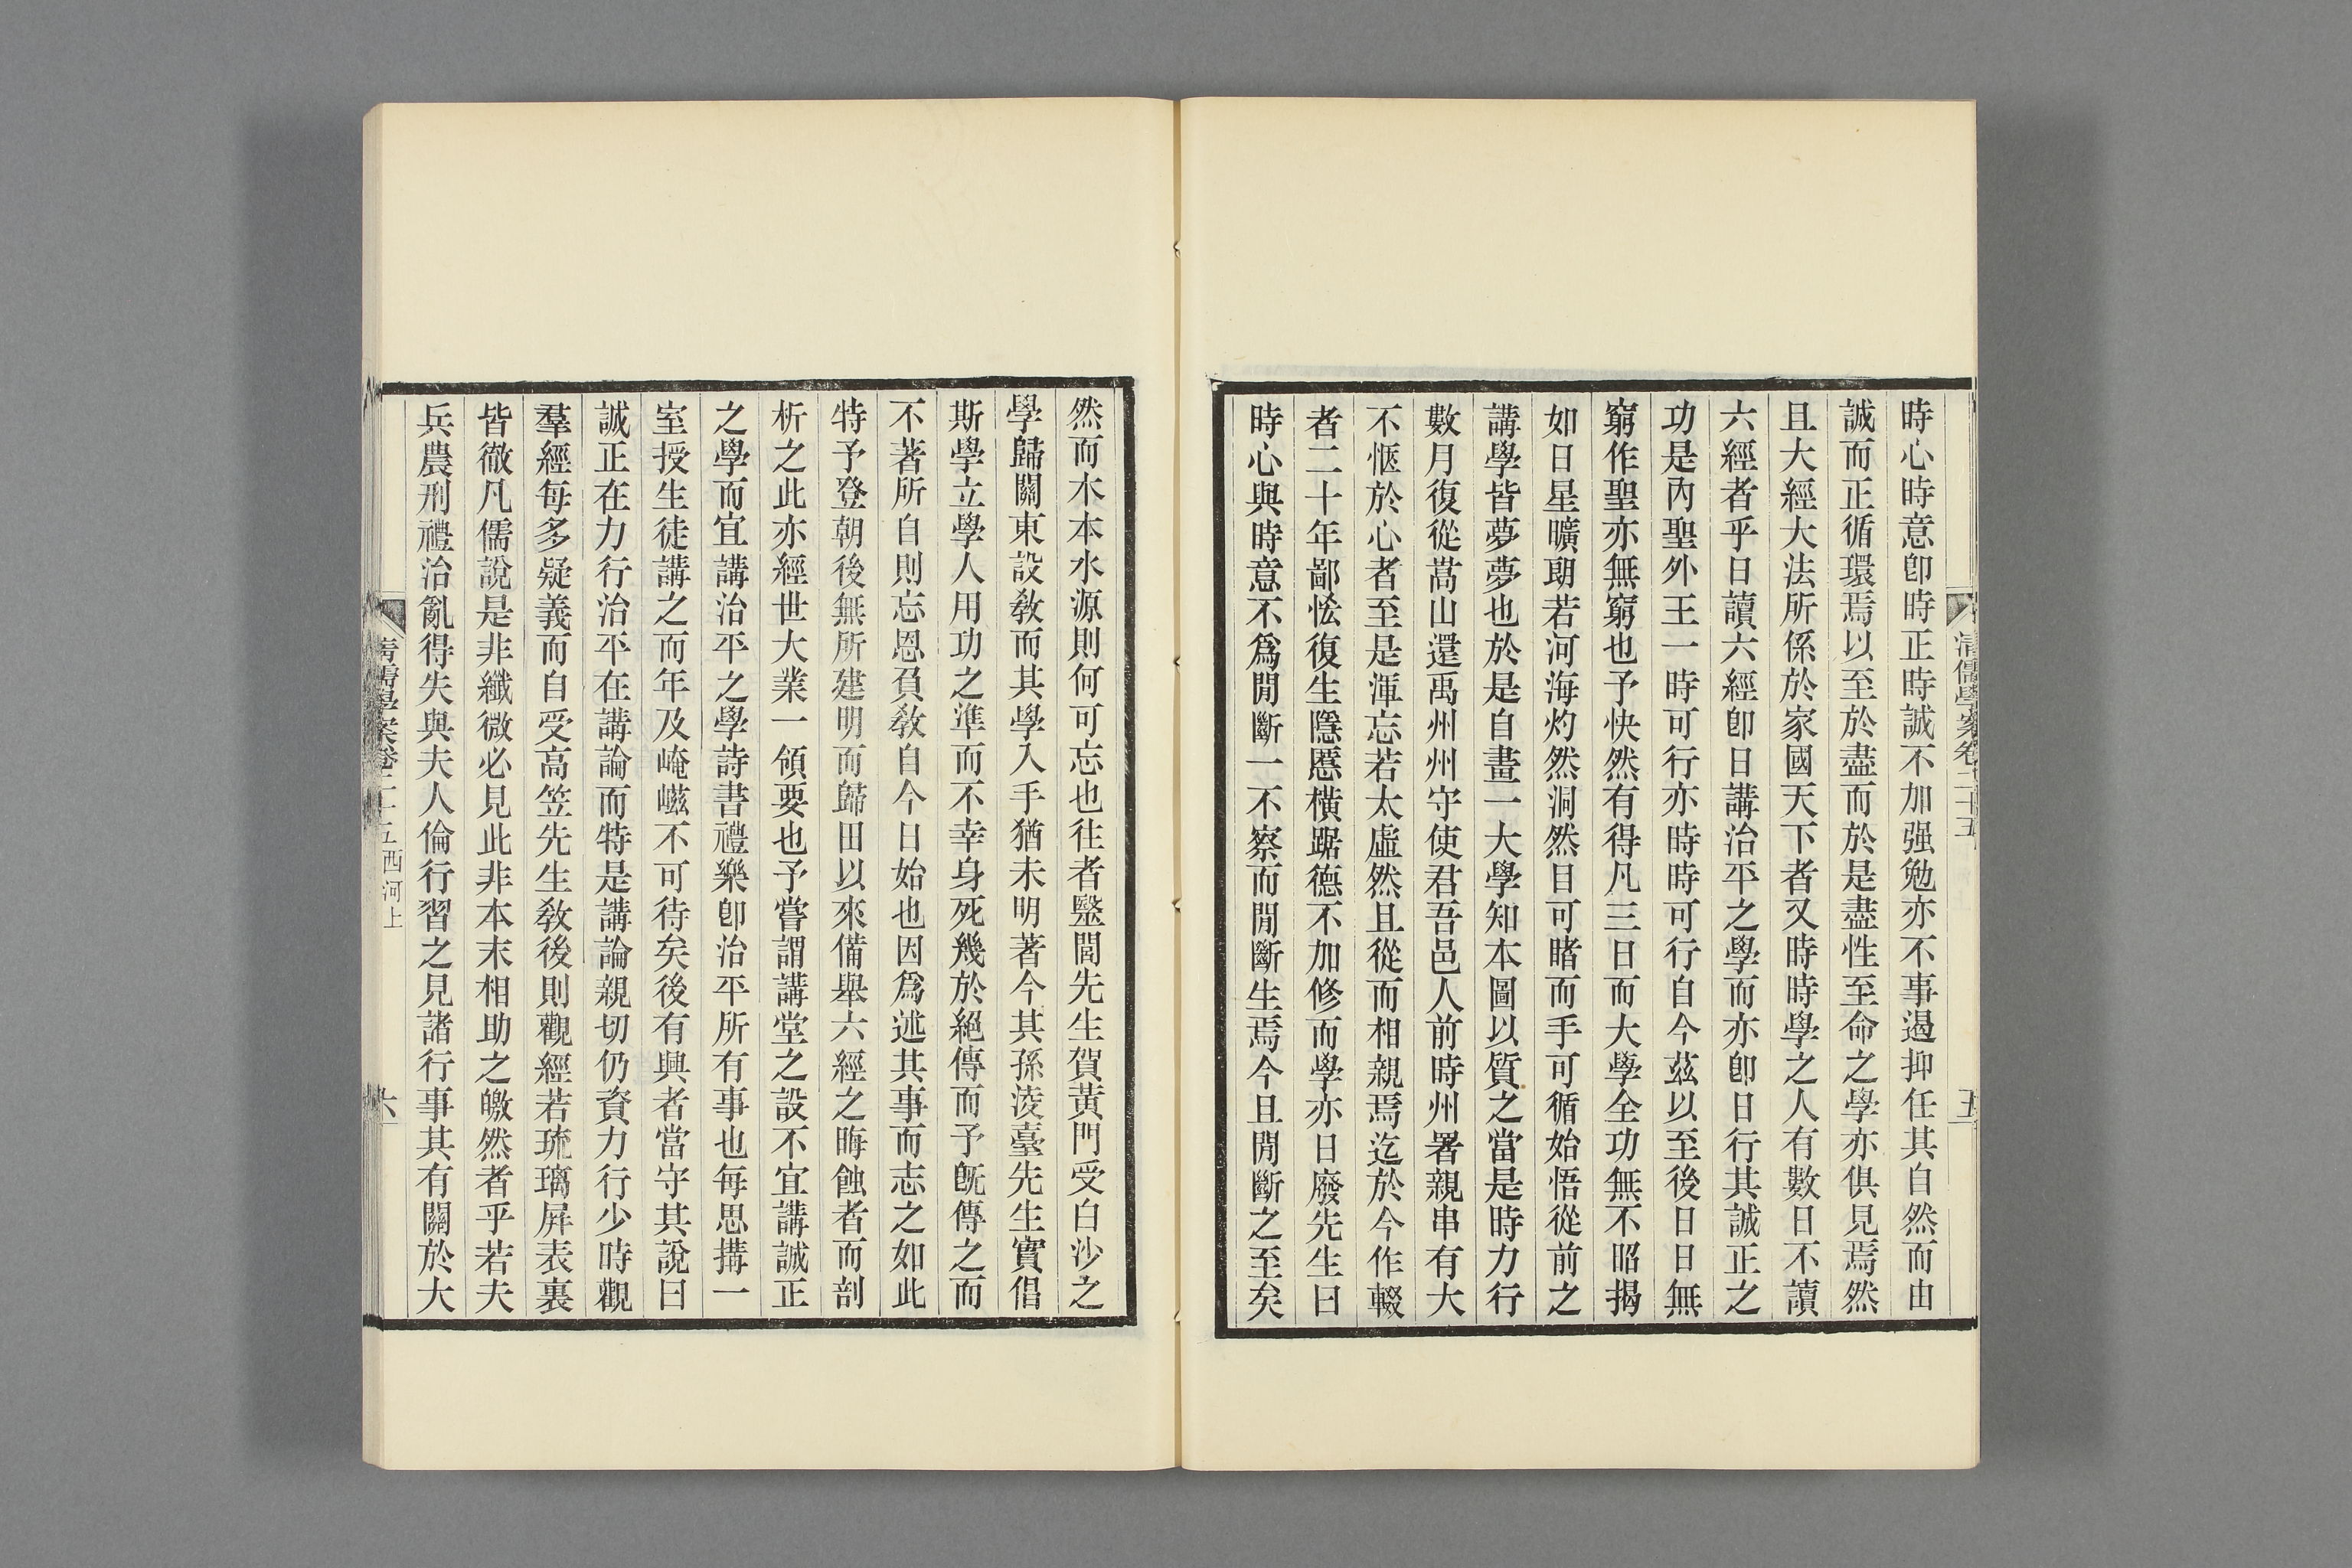 時心時意卽時正時誠不加强勉亦不事遏抑任其自然而由
誠而正循環焉以至於盡而於是盡性至命之學亦俱見焉然
且大經大法所係於家國天下者又時時學之人有數日不讀
六經者乎日讀六經卽日講治平之學而亦卽日行其誠正之
功是內聖外王一時可行亦時時可行自今茲以至後日日無
窮作聖亦無窮也予快然有得凡三日而大學全功無不昭揭
如日星曠朗若河海灼然洞然目可睹而手可循始悟從前之
講學皆夢夢也於是自畫一大學知本圖以質之當是時力行
數月復從嵩山還禹州州守使君吾邑人前時州署親串有大
不愜於心者至是渾忘若太虛然且從而相親焉迄於今作輟
者二十年鄙恡復生隱慝橫踞德不加修而學亦日廢先生曰
時心與時意不爲閒斷一不察而閒斷生焉今且閒斷之至矣
清儒學案卷二十五
五
然而木本水源則何可忘也往者毉閭先生賀黃門受白沙之
學歸關東設敎而其學入手猶未明著今其孫淩臺先生實倡
斯學立學人用功之準而不幸身死幾於絕傳而予旣傳之而
不著所自則忘恩負敎自今日始也因爲述其事而志之如此
特予登朝後無所建明而歸田以來備舉六經之晦蝕者而剖
析之此亦經世大業一領要也予嘗謂講堂之設不宜講誠正
之學而宜講治平之學詩書禮樂卽治平所有事也每思搆一
室授生徒講之而年及崦嵫不可待矣後有興者當守其說曰
誠正在力行治平在講論而特是講論親切仍資力行少時觀
羣經每多疑義而自受高笠先生敎後則觀經若琉璃屏表裏
皆徹凡儒說是非纖微必見此非本末相助之皦然者乎若夫
兵農刑禮治亂得失與夫人倫行習之見諸行事其有關於大
清儒學案卷二十五 西河上
六